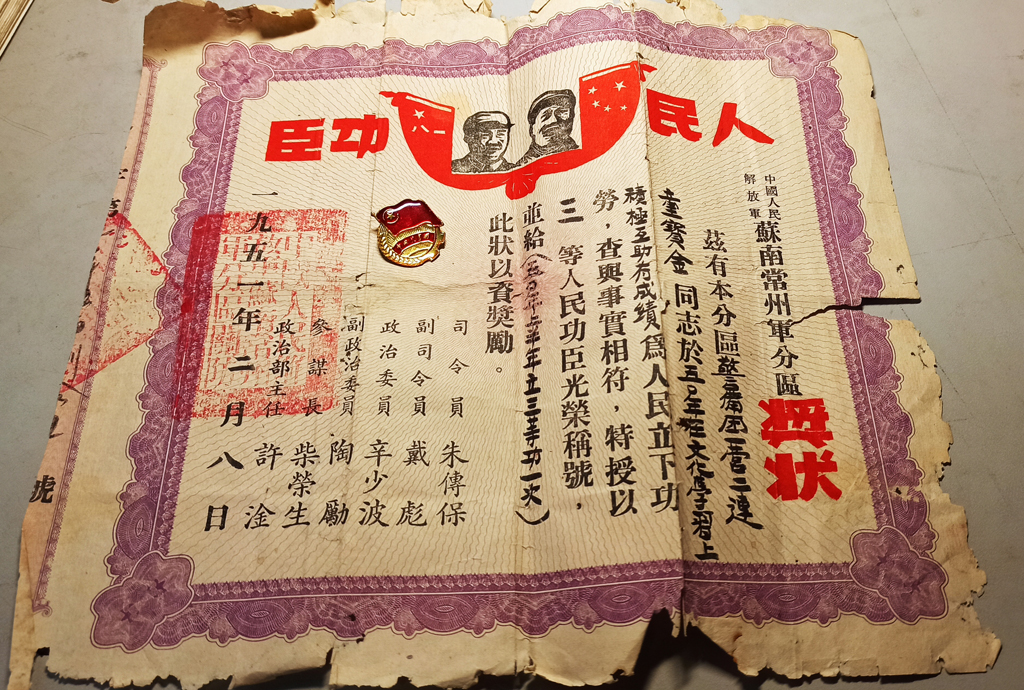 人民功臣
中國人民解放軍蘇南常州軍分區獎狀
茲有本分區警衛團一營二連
童寶金同志於五〇年在文化學習上
積極互助有成績爲人民立下功
勞，查與事實相符，特授以
三等人民功臣光榮稱號，
並給（五〇年上半年立三等功一次）
此狀以資獎勵。
司令員 朱傳保
副司令員 戴彪
政治委員 辛少波
副政治委員 陶勵
參謀長 柴榮生
政治部主任 許淦
一九五一年二月八日
八一
號